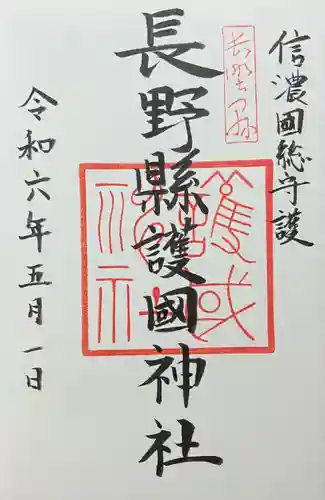 信濃國総守護
長野縣護國神社
令和六年五月一日